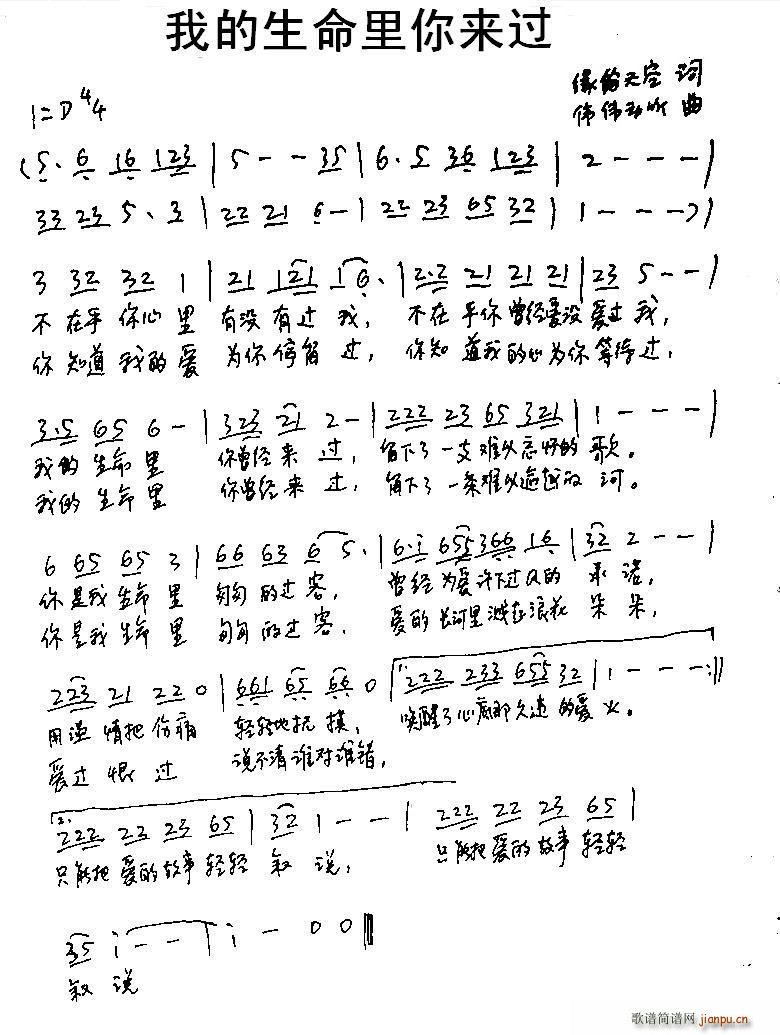 我的生命里你来过
缘份天空 词
1=D 4/4
伟伟 曲
(5. 6 16 123 | 5 - - 35 | 6. 5 36 123 | 2 - - - |
33 23 5. 3 | 22 21 6 - | 22 23 65 32 | 1 - - -) |
3 32 32 1 | 21 121 16. | 2.2 21 21 21 | 23 5 - - |
不在乎你心里 有没有过我, 不在乎你曾经爱没爱过我,
你知道我的爱 为你停留过, 你知道我的心为你等待过,
3.5 65 6 - | 323 21 2 - | 222 23 65 321 | 1 - - - |
我的生命里 你曾经来过, 留下了一支难以忘怀的歌。
我的生命里 你曾经来过, 留下了一条难以逾越的河。
6 65 65 3 | 66 63 6 5. | 6.i 655 366 16 | 32 2 - - |
你是我生命里 匆匆的过客, 曾经为爱许下过的 承诺,
你是我生命里 匆匆的过客, 爱的长河里溅起浪花朵朵,
223 21 22 0 | 661 65 66 0 | 1. 222 233 655 32 | 1 - - - :||
用深情把伤痛 轻轻地抚摸, 唤醒了心底那久违的爱火。
爱过恨过 说不清谁对谁错,
2. 222 23 23 65 | 32 1 - - | 222 22 23 65 |
只能把爱的故事轻轻 叙说, 只能把爱的故事轻轻
35 i - - | i - 0 0 ||
叙说
歌谱简谱网
jianpu.cn